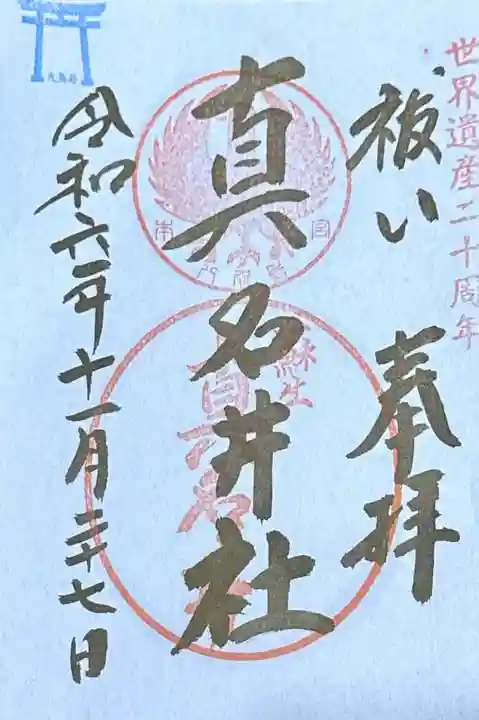 世界遺産二十周年
祓い 奉拝
真名井社
蘇生
令和六年十一月二十七日